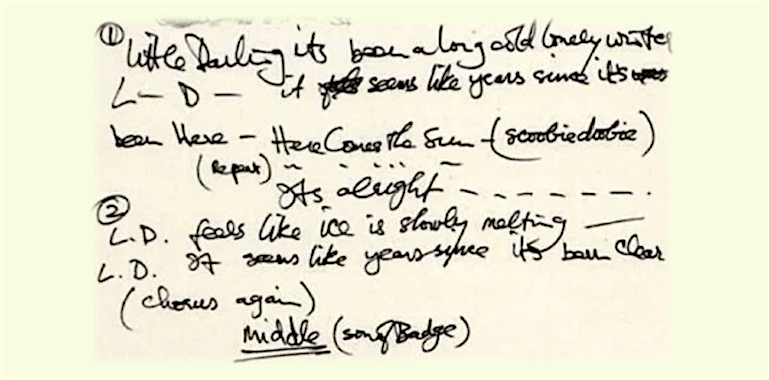 ① Little Darling its been a long cold lonely winter
L — D — it seems like years since its
been Here — Here Comes the Sun — (scoobiedoobie)
(Repeat) " - . . . -
Its alright - - - - - - - .
② L.D. feels like ice is slowly melting —
L.D. It seems like years since its been clear
(chorus again)
Middle (son of Badge)